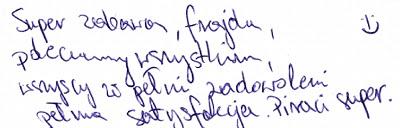 Super zabawa, frajda, :)
polecamy wszystkim,
wszyscy w pełni zadowoleni
pełna satysfakcja. Piraci super.